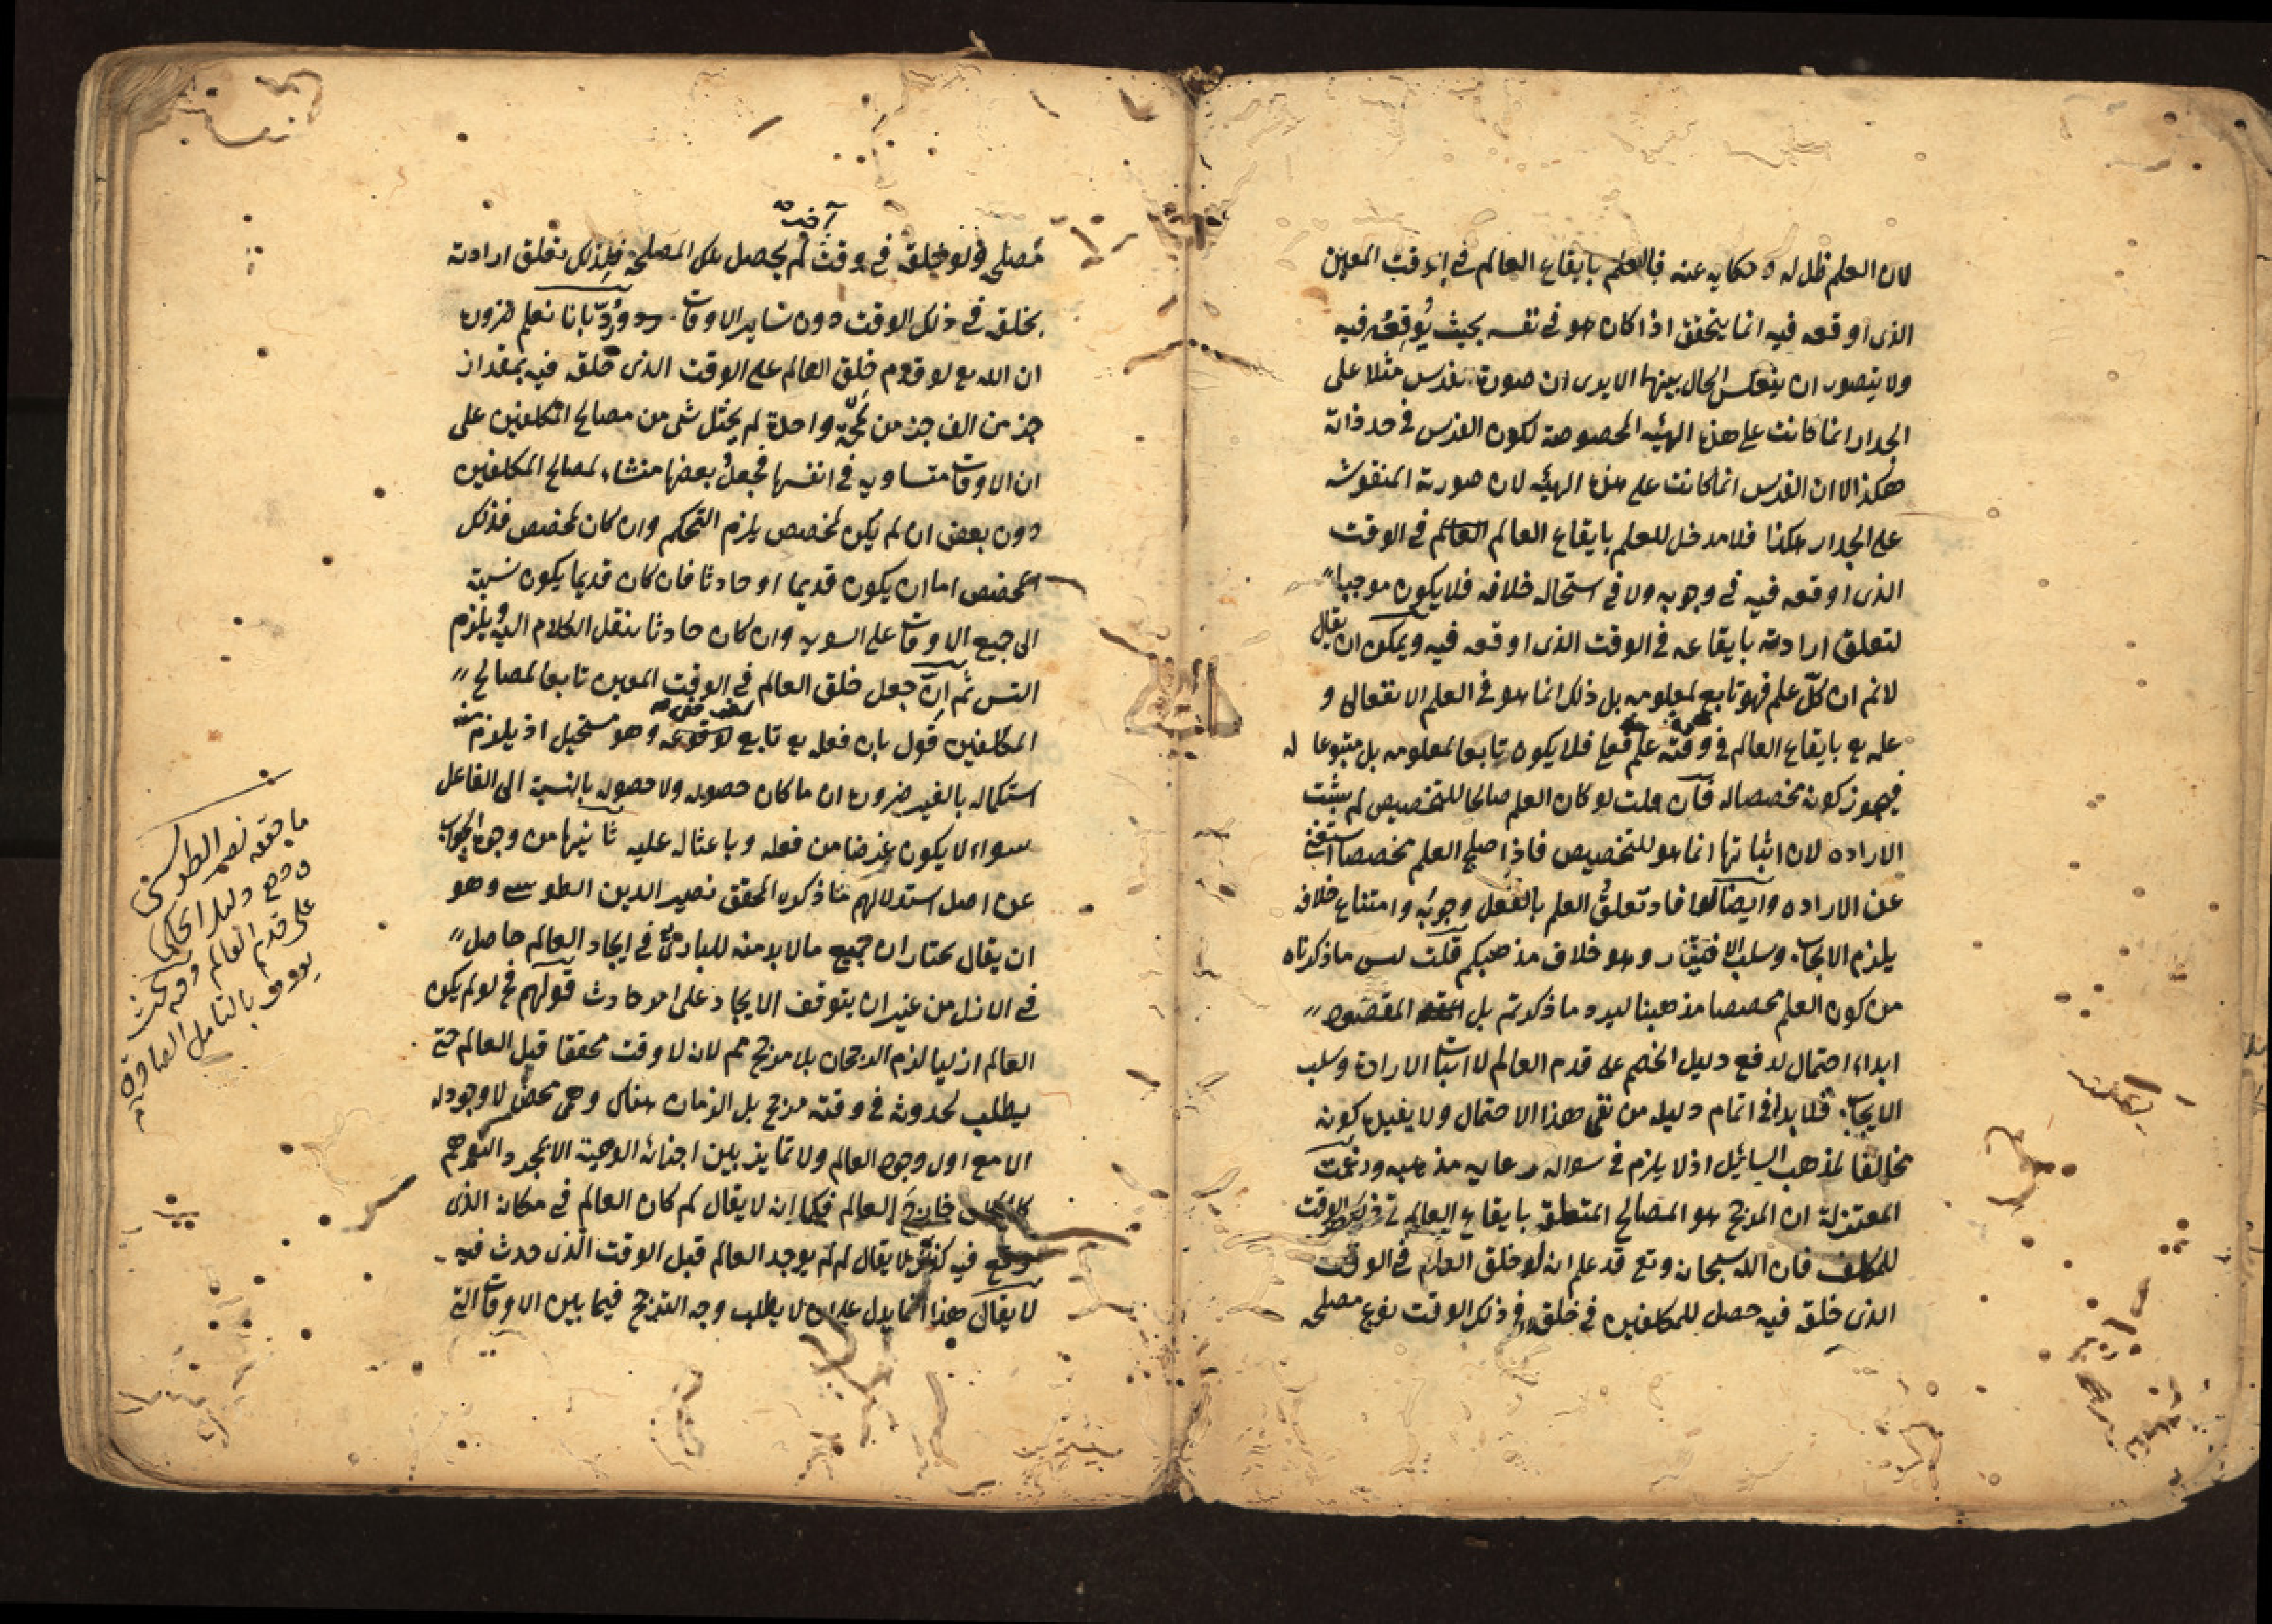 لان العلم ظل له و حكايه عنه فالعلم بايقاع العالم في الوقت المعين
الذى اوقعه فيه انما يتحقق اذا كان هو في نفسه بحيث يُوقِعُه فيه
ولا يتصور ان ينعكس الحال بينهما الا يرى ان صورة الفرس مثلا على
الجدار انما كانت على هذه الهيئه المخصوصة لكون الفرس في حد ذاته
هكذا لا ان الفرس انما كانت على هذه الهيئه لان صورته المنقوشه
على الجدار هكذا فلا مدخل للعلم بايقاع العالم العالم في الوقت
الذى اوقعه فيه في وجوبه ولا في استحاله خلافه فلا يكون موجبا
لتعلق ارادته بايقاعه في الوقت الذى اوقعه فيه ويمكن ان يقال
لانم ان كلّ علم فهو تابع لمعلومه بل ذلك انما هو في العلم الانفعالى و
علمه تع بايقاع العالم في وقته علم فعلى فلا يكون تابعا لمعلومه بل متبوعا له
فيجوز كونه مخصصا له فآن قلت لو كان العلم صالحا للتخصيص لم يثبت
الاراده لان اثباتها انما هو للتخصيص فاذا صلح العلم مخصصا استغنى
عن الاراده وايضا لو افاد تعلقُ العلم بالفعل وجوبَه وامتناع خلافه
يلزم الايجاب وسلب الاختيار وهو خلاف مذهبكم قلت ليس ما ذكرناه
من كون العلم مخصصا مذهبنا ليرد ما ذكرتم بل المقصود
ابداء احتمال لدفع دليل الخصم على قدم العالم لا اثبات الارادة وسلب
الايجاب فلا بد له في اتمام دليله من نفى هذا الاحتمال ولا يفيده كونه
مخالفا لمذهب السائل اذ لا يلزم في سواله رعايه مذهبه وزعمت
المعتزلة ان المرجح هو المصالح المتعلقه بايقاع العالم في ذلك الوقت
للمكلف فان الله سبحانه وتع قد علم انه لو خلق العالم في الوقت
الذى خلقه فيه حصل للمكلفين في خلقه في ذلك الوقت نوع مصلحه
آخر
مصلحه ولو خلقه في وقت لم يحصل تلك المصلحه فلذلك تعلق ارادته
بخلقه في ذلك الوقت دون ساير الاوقات ورُدّ بانا نعلم ضرورة
ان الله تع لو قدم خلق العالم على الوقت الذى خلقه فيه بمقدار
جزء من الف جزء من لمحة واحدة لم يختل شى من مصالح المكلفين على
ان الاوقات متساويه في انفسها فجعلُ بعضها منشاء لمصالح المكلفين
دون بعض ان لم يكن لمخصص يلزم التحكم وان كان لمخصص فذلك
المخصص اما ان يكون قديما او حادثا فان كان قديما يكون نسبته
الى جميع الاوقات على السويه وان كان حادثا ننقل الكلام اليه ويلزم
التس ثم ان جعل خلق العالم في الوقت المعين تابعا لمصالح
المكلفين قول بان فعله تع تابع لغرض وهو مستحيل اذ يلزم منه
استكماله بالغير ضرورة ان ما كان حصوله ولا حصوله بالنسبة الى الفاعل
سواء لا يكون غرضا من فعله وباعثا له عليه ثانيها من وجوه الجواب
عن اصل استدلالهم ما ذكره المحقق نصير الدين الطوسى وهو
ان يقال نختار ان جميع ما لابد منه للبارى في ايجاد العالم حاصل
في الازل من غير ان يتوقف الايجاد على امر حادث قولهم فح لو لم يكن
العالم ازليا لزم الرجحان بلا مرجح مم لانه لا وقت محققا قبل العالم حتى
يطلب لحدوثه في وقته مرجح بل الزمان هناك وهمى محض لا وجود له
الا مع اول وجود العالم ولا تمايز بين اجزائه الوهمية الا بمجرد التوهم
كالمكان خارج العالم فكما انه لا يقال لم كان العالم في مكان الذى
وقع فيه كذلك لا يقال لم لم يوجد العالم قبل الوقت الذى حدث فيه
لا يقال هذا انما يدل على ان لا يطلب وجه الترجح فيما بين الاوقات التى
ما حققه نصير الطوسى فى
دفع دليل الحكما
على قدم العالم وفيه بحث
يعرف بالتامل الصادق